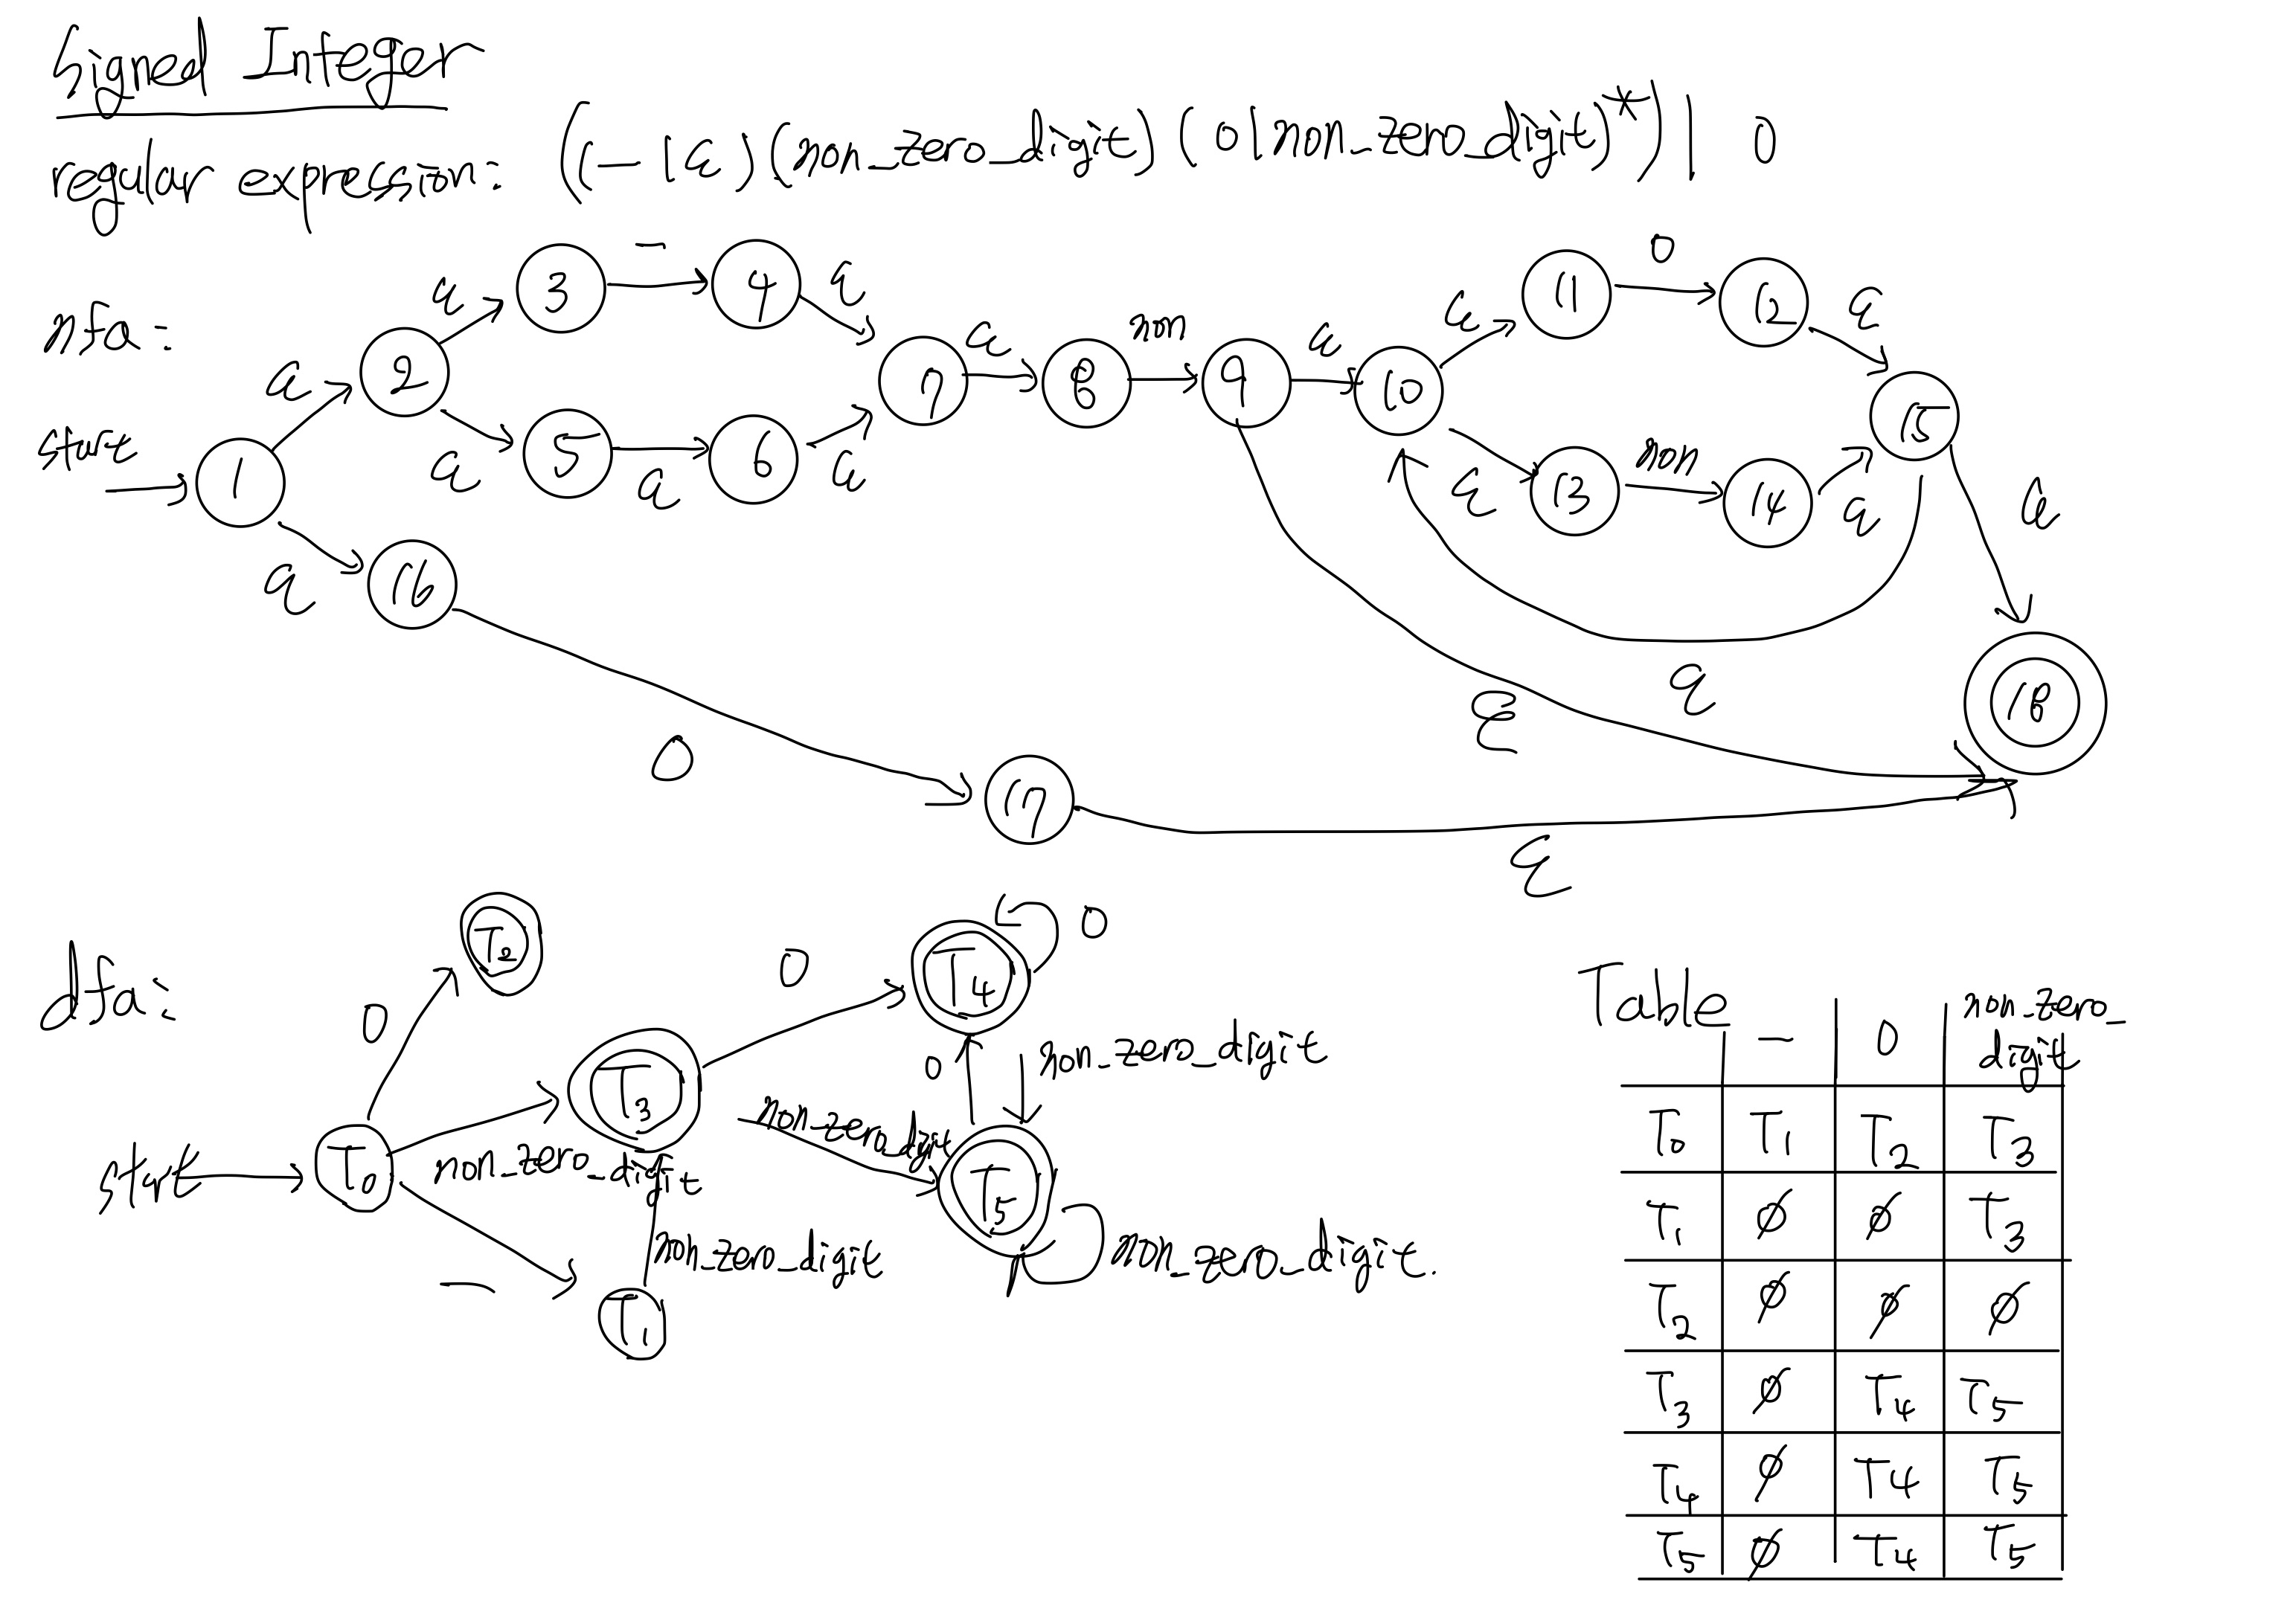 Signed Integer
regular expression: ((-|ε)(non_zero_digit)(0|non_zero_digit)*)| 0
nfa:
start
1 ε 2 ε 3 - 4 ε 7 ε 8 non 9 ε 10 ε 11 0 12 ε 15
ε 5 ε 6 ε
ε 13 non 14 ε
ε 16 0 17 ε
ε ε ε 18
dfa:
start T0
0 T2
non_zero_digit T3
- T1
non_zero_digit
0 T4 0
non_zero_digit T5
0 non_zero_digit
non_zero_digit.
Table
- 0 non_zero_
digit
T0 T1 T2 T3
T1 ∅ ∅ T3
T2 ∅ ∅ ∅
T3 ∅ T4 T5
T4 ∅ T4 T5
T5 ∅ T4 T5